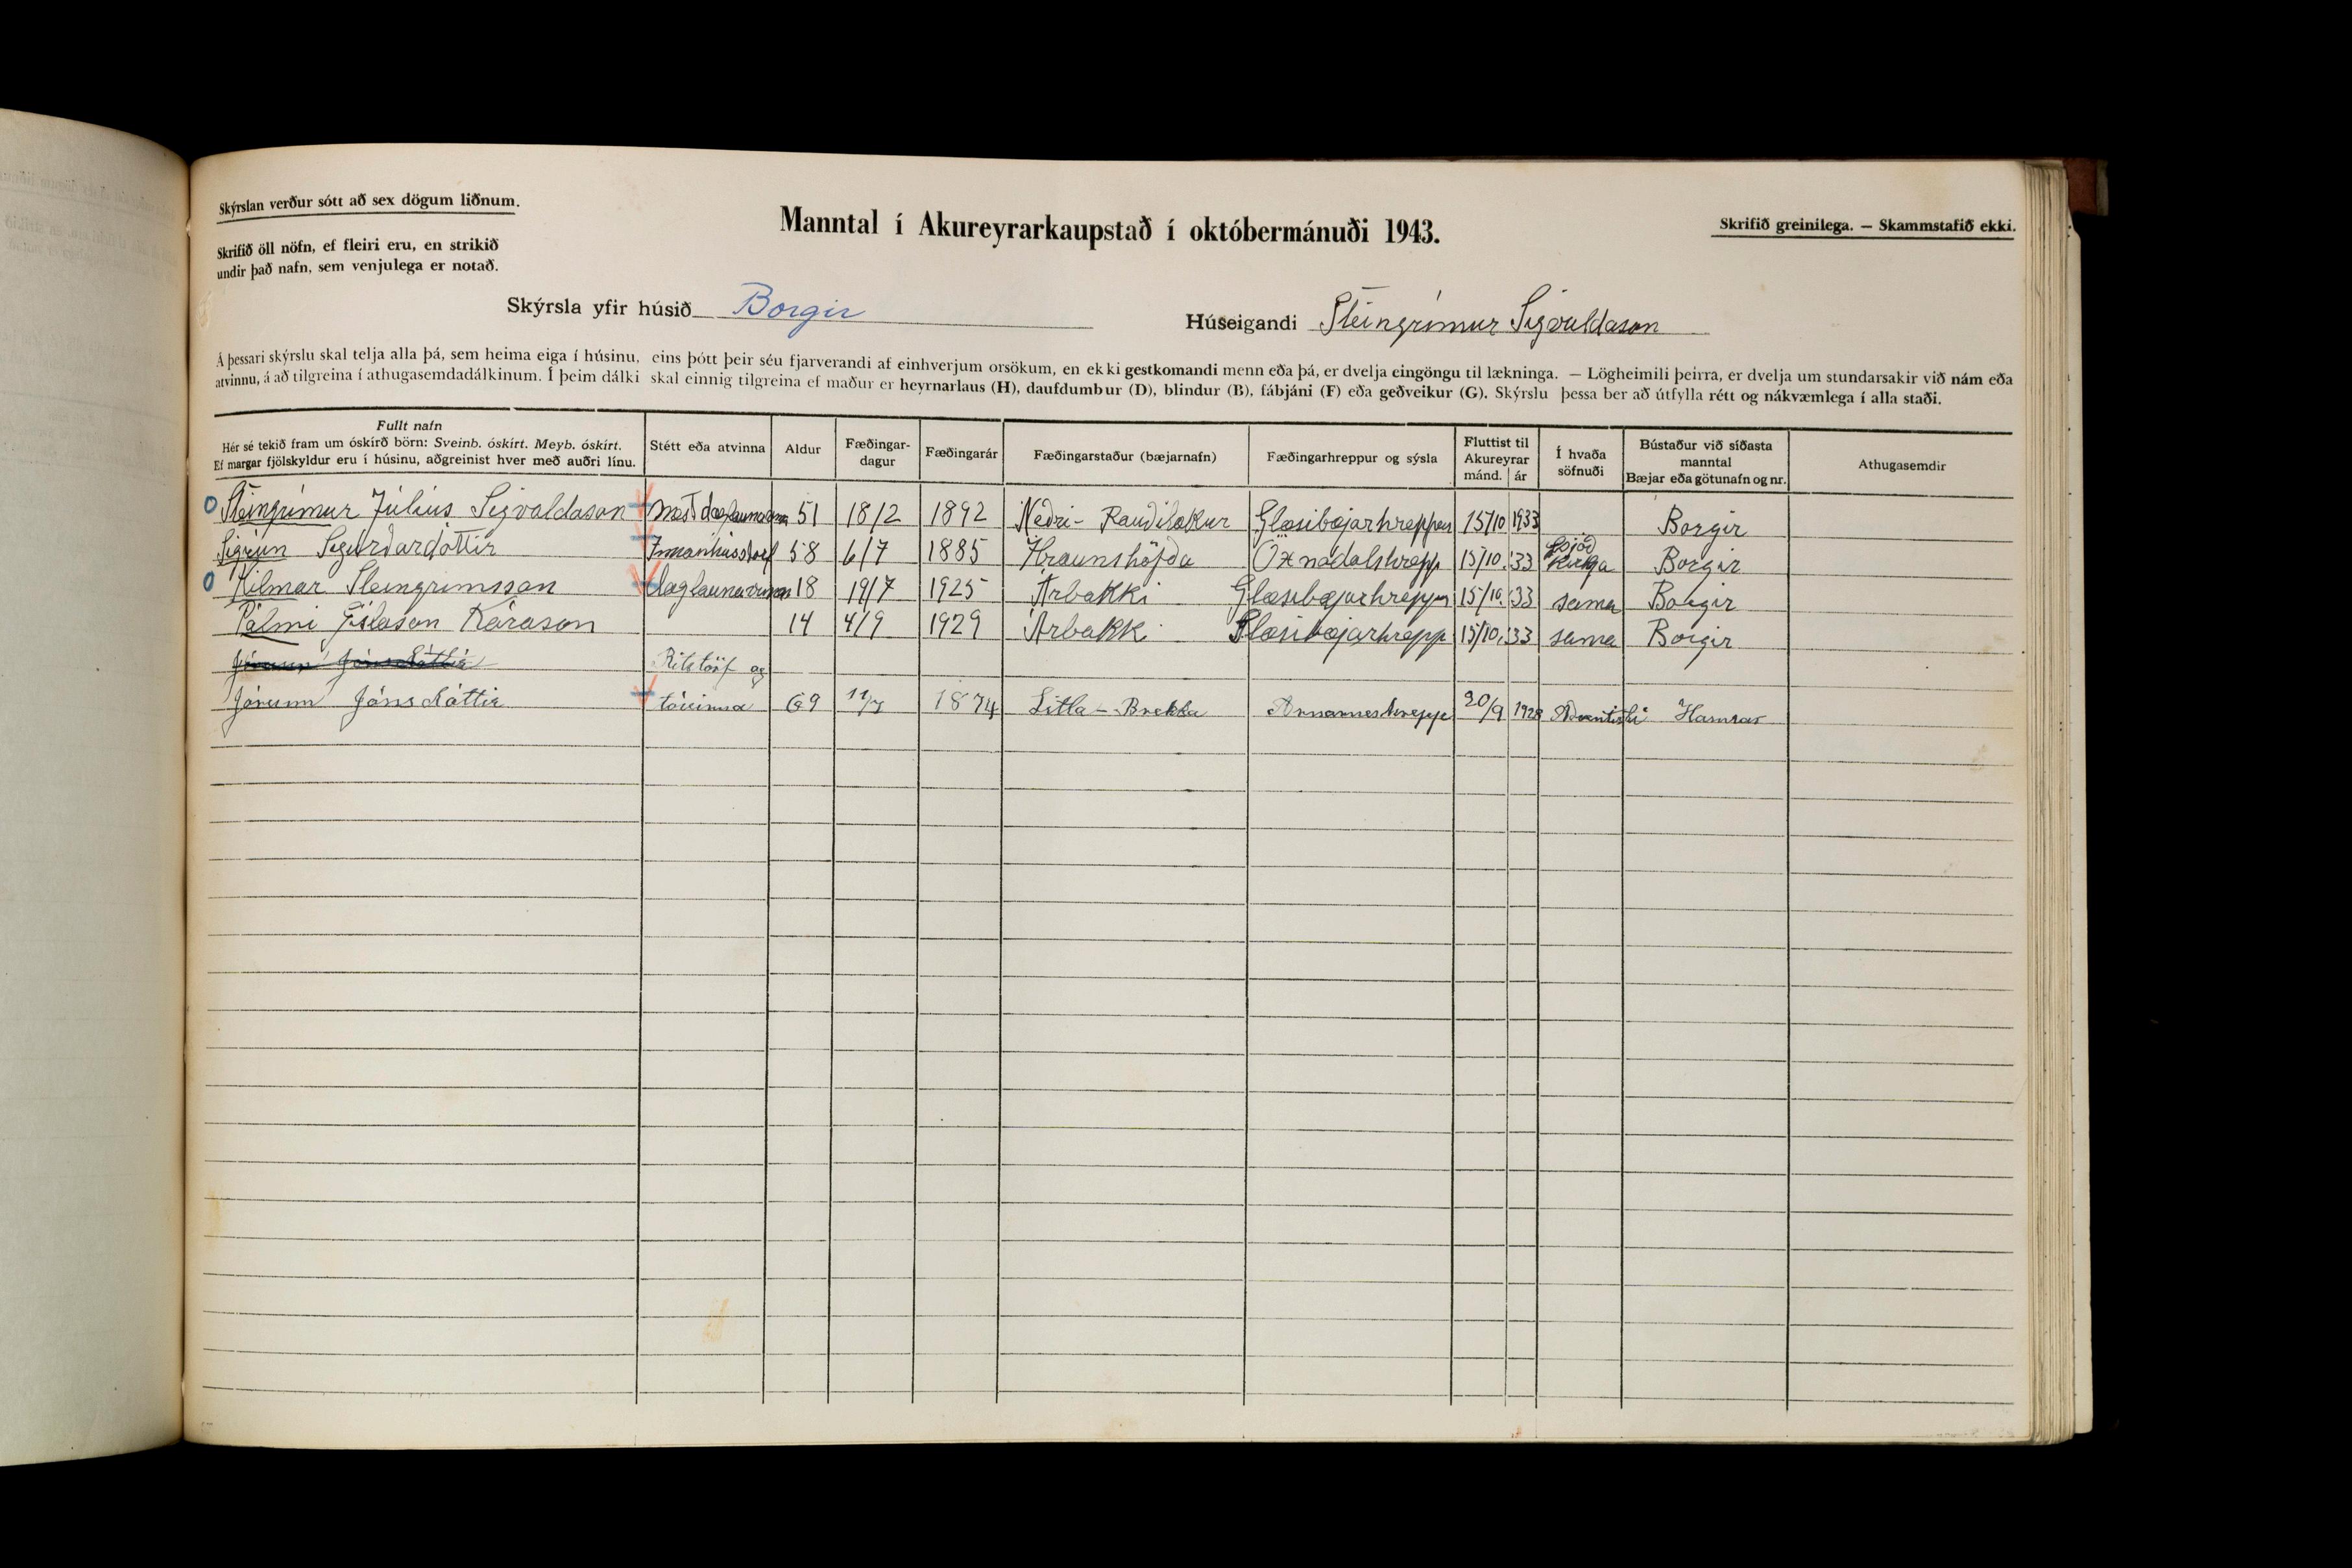 Skýrslan verður sótt að sex dögum liðnum.
Skrifið öll nöfn, ef fleiri eru, en strikið
undir það nafn, sem venjulega er notað.
Manntal í Akureyrarkaupstað í októbermánuði 1943.
Skrifið greinilega. — Skammstafið ekki.
Skýrsla yfir húsið Borgir
Húseigandi Steingrímur Sigvaldason
Á þessari skýrslu skal telja alla þá, sem heima eiga í húsinu, eins þótt þeir séu fjarverandi af einhverjum orsökum, en ekki gestkomandi menn eða þá, er dvelja eingöngu til lækninga. — Lögheimili þeirra, er dvelja um stundarsakir við nám eða
atvinnu, á að tilgreina í athugasemdadálkinum. Í þeim dálki skal einnig tilgreina ef maður er heyrnarlaus (H), daufdumbur (D), blindur (B), fábjáni (F) eða geðveikur (G). Skýrslu þessa ber að útfylla rétt og nákvæmlega í alla staði.
Fullt nafn
Hér sé tekið fram um óskírð börn: Sveinb. óskírt. Meyb. óskírt.
Ef margar fjölskyldur eru í húsinu, aðgreinist hver með auðri línu.
Stétt eða atvinna
Aldur
Fæðingar-
dagur
Fæðingarár
Fæðingarstaður (bæjarnafn)
Fæðingarhreppur og sýsla
Fluttist til
Akureyrar
mánd. ár
Í hvaða
söfnuði
Bústaður við síðasta
manntal
Bæjar eða götunafn og nr.
Athugasemdir
Steingrímur Júlíus Sigvaldason mest daglaunavinna 51 18/2 1892 Neðri-Rauðilækur Glæsibæjarhreppur 15/10 1933 Borgir
Sigrún Sigurðardóttir Innanhússtörf 58 6/7 1885 Hraunshöfða Öxnadalshrepp 15/10. '33 Þjóð Kirkja Borgir
Hilmar Steingrímsson daglaunavinna 18 19/7 1925 Árbakki Glæsibæjarhreppur 15/10. '33 sama Borgir
Pálmi Kárason 14 4/9 1929 Árbakki Glæsibæjarhrepp 15/10. '33 sama Borgir
Jórunn Jónsdóttir Ritstörf og
Jórunn Jónsdóttir tóvinna 69 11/7 1874 Litla-Brekka Arnarneshreppi 20/9 1928 Aðventisti Hamrar